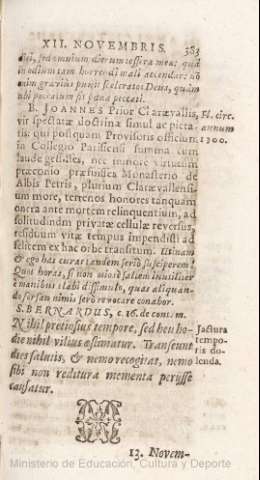 XII. NOVEMBRIS. 383
dici, sed omnium dierum tessera mea: quid
in odium tam horrendi mali accendar: nō
enim gravius punit sceleratos Deus, quàm
ubi peccatum fit pœna peccati.
B. JOANNES Prior Clarævallis,
vir spectatæ doctrina simul ac pieta-
tis: qui postquam Provisoris officium
in Collegio Parisiensi summa cum
laude gessisset, nec minore virtutum
præconio præfuisset Monasterio de
Albis Petris, plurium Claravallensi-
um more, terrenos honores tanquam
onera ante mortem relinquentium, ad
solitudinem privatæ cellulæ reversus,
residuum vitæ tempus impendisti ad
felitem ex hac orbe transitum. Utinam
& ego has curas tandem seriò susciperem!
Quot horas, si non
è manibus elabi dissimulo, quas aliquan-
do forsan nimis serò revocare conabor.
S. BERNARDUS, c. 16. de cont. m.
Nihil pretiosius tempore, sed heu ho-
die nihil vilius æstimatur. Transeunt
dies salutis, & nemo recogitat, nemo
sibi non reditura momenta perysse
causatur.
Fl. circ.
annum
1300.
Jactura
tempo-
ris do-
lenda.
13. Novem-
Ministerio de Educación, Cultura y Deporte